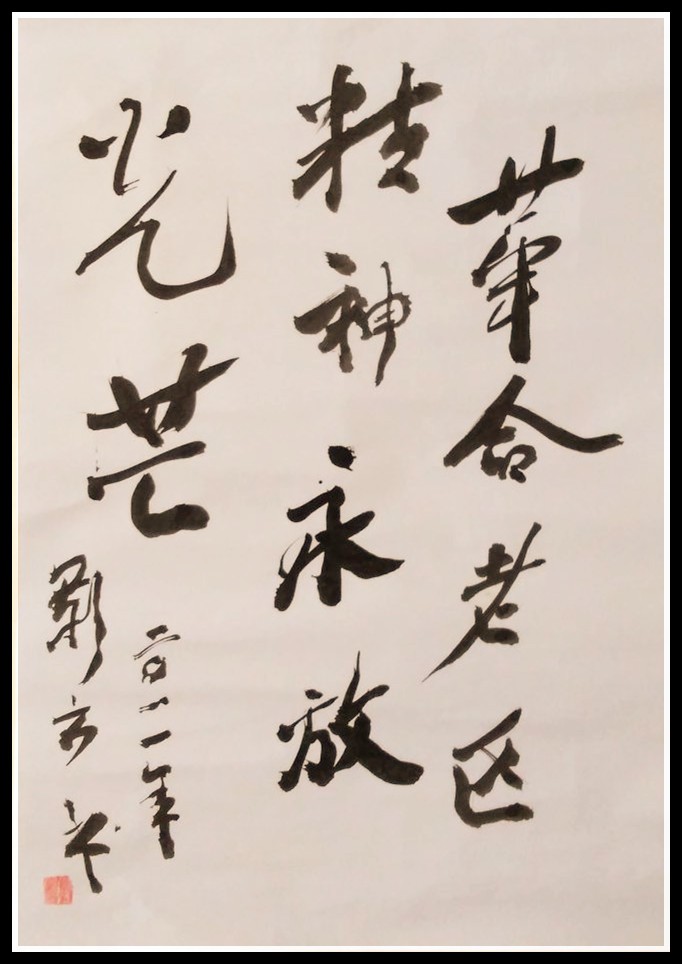 革命老区
精神永放
光芒
二〇一一年